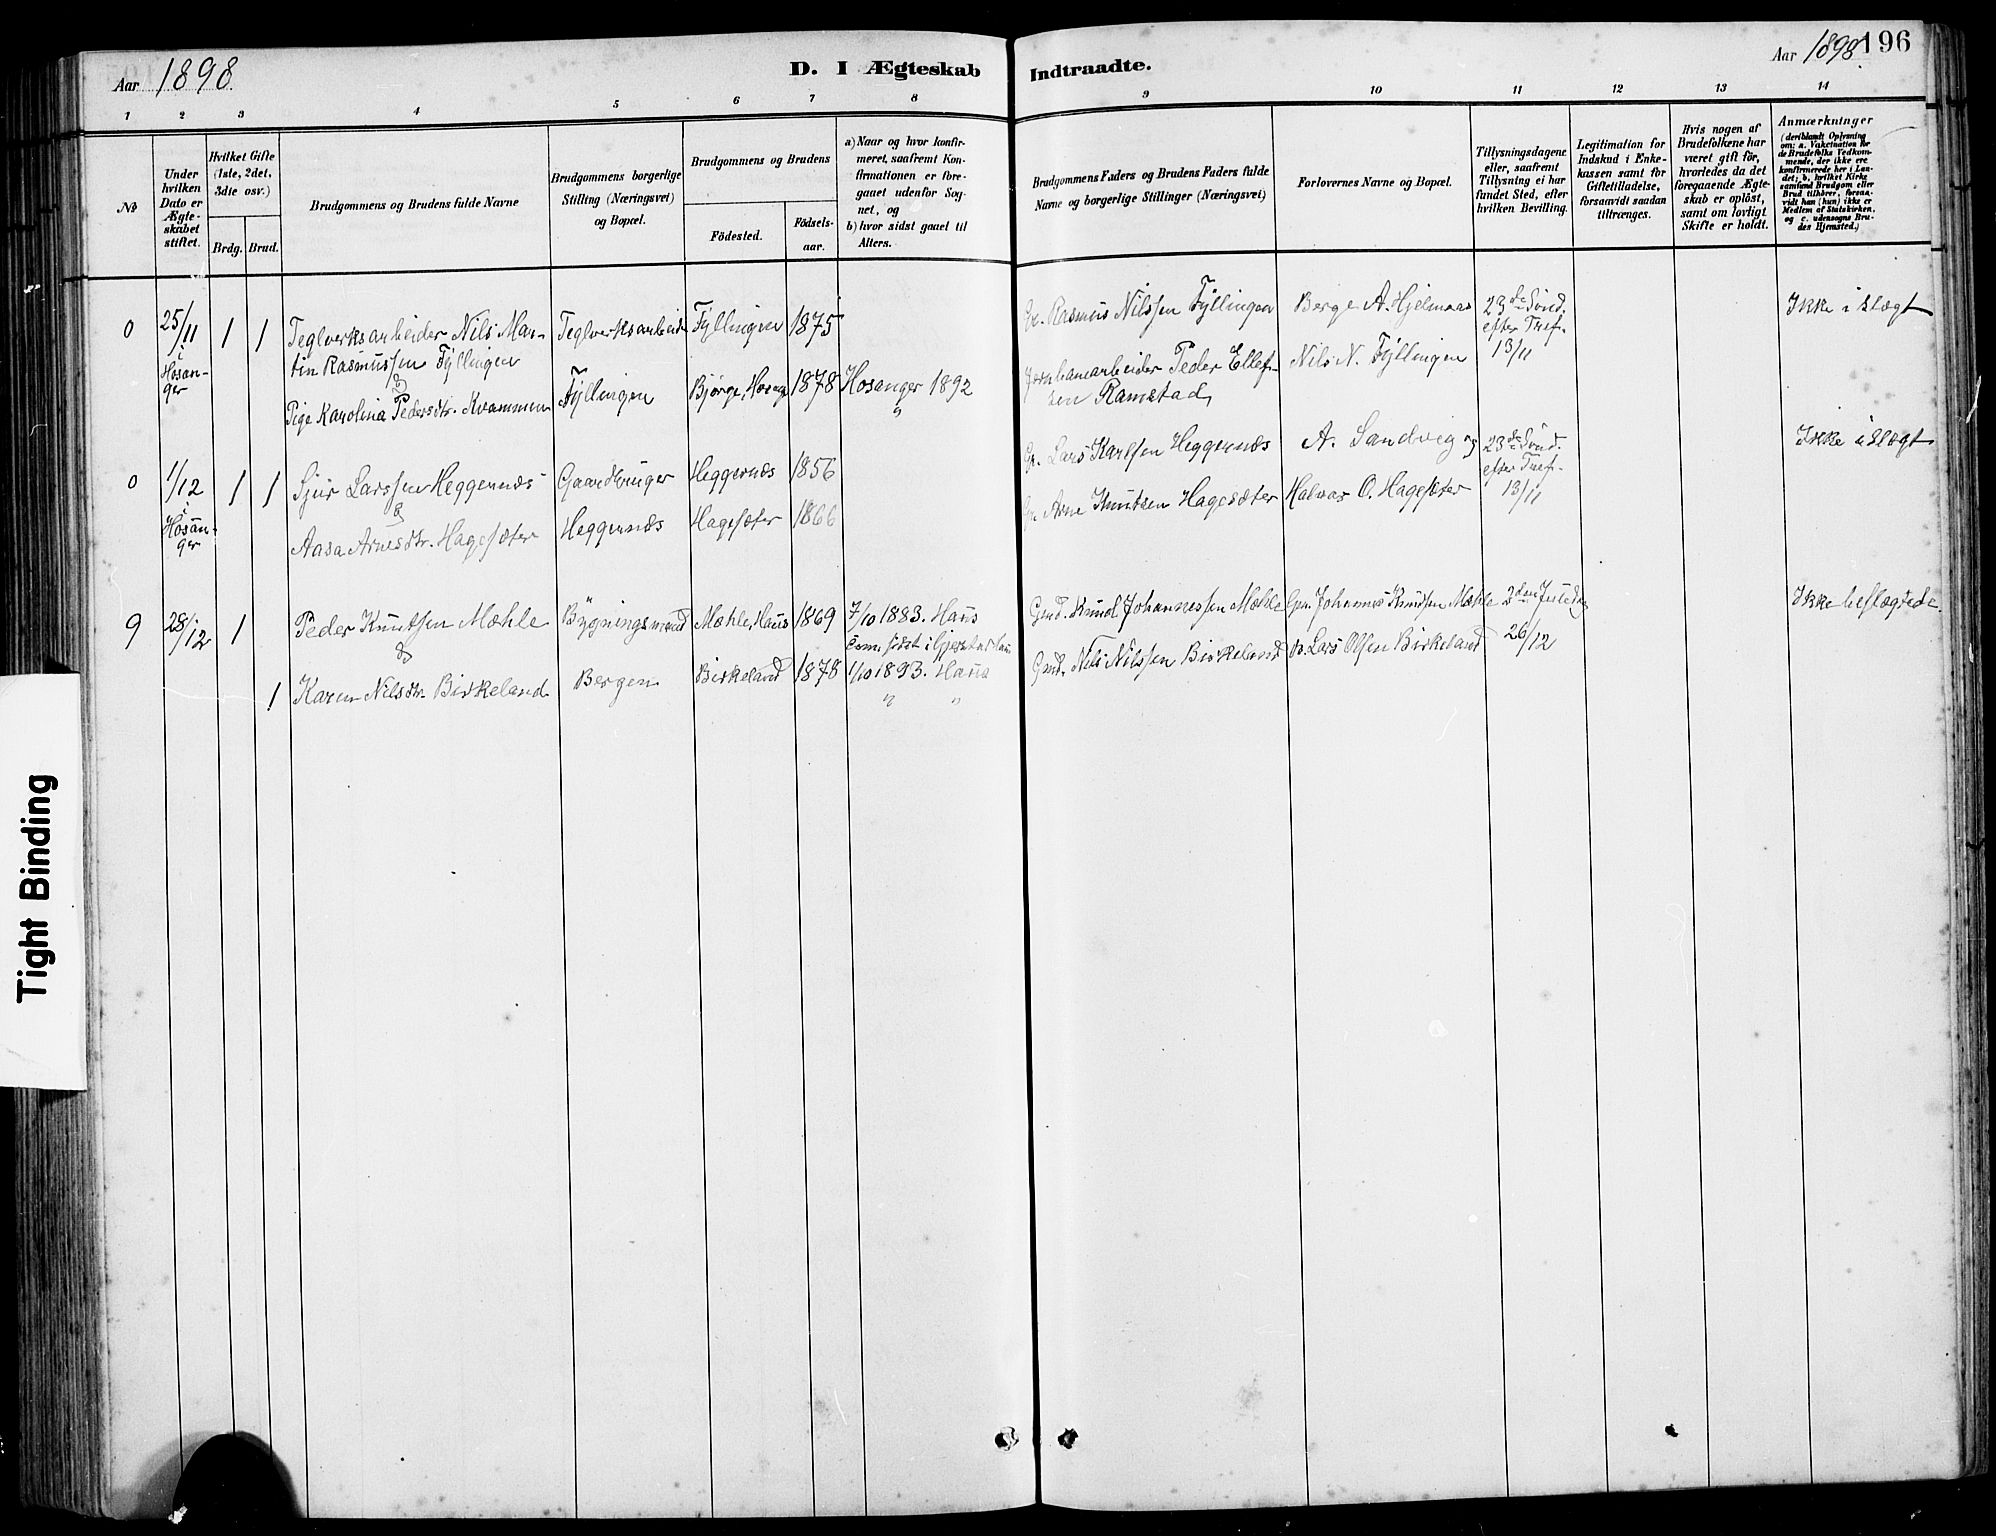 Aar 1898.
D. I Ægteskab
Indtraadte.
Aar 1898.
196
1 2 3 4 5 6 7 8 9 10 11 12 13 14
No
Under
hvilken
Dato er
Ægte-
skabet
stiftet.
Hvilket Gifte
(1ste, 2det,
3die osv.)
Brdg. Brud.
Brudgommens og Brudens fulde Navne
Brudgommens borgerlige
Stilling (Næringsvei)
og Bopæl.
Brudgommens og Brudens
Födested.
Födsels-
aar.
a) Naar og hvor konfir-
meret, saafremt Kon-
firmationen er fore-
gaaet udenfor Sog-
net, og
b) hvor sidst gaaet til
Alters.
Brudgommens Faders og Brudens Faders fulde
Navne og borgerlige Stillinger (Næringsvei)
Forlovernes Navne og Bopæl.
Tillysningsdagene
eller, saafremt
Tillysning ei har
fundet Sted, efter
hvilken Bevilling.
Legitimation for
Indskud i Enke-
kassen samt for
Giftetilladelse,
forsaavidt saadan
tiltrænges.
Hvis nogen af
Brudefolkene har
været gift før,
hvorledes da det
foregaaende Ægte-
skab er oplöst,
samt om lovligt
Skifte er holdt.
Anmærkninger
(deriblandt Oplysning
om: a. Vakcination for
de Brudefolks Vedkom-
mende, der ikke ere
konfirmerede her i Lan-
det; b. hvilket Kirke
samfund Brudgom eller
Brud tilhörer, forsaa-
vidt han (hun) ikke er
Medlem af Statskirken,
og c. udensogns Bru-
des Hjemsted.)
0
25/11
i
Hosan-
ger
1 1
Teglverksarbeider Nils Mar-
tin Rasmussen Fyllingen
&
Pige Karolina Pedersdtr. Kvammen
Teglverksarbeid
Fyllingen
Fyllingen 1875
Bjørge, Hosang 1878
Hosanger 1892
"
Gr. Rasmus Nilssen Fyllingen
Jernbanearbeider Peder Ellef-
sen Ramstad
Berge A. Hjelmaas
Nils N. Fyllingen
23de Sönd.
efter Tref.
13/11
Ikke i Slægt
0
1/12
i
Hosan-
ger
1 1
Sjur Larssen Heggernæs
&
Aasa Arnesdtr. Hagesæter
Gaardbruger
Heggernæs
Heggernæs 1856
Hagesæter 1866
Gr. Lars Karlsen Heggernæs
Gr. Arne Knutsen Hagesæter
A. Sandvig og
Halvor O. Hagesæter
23de Sönd.
efter Tref.
13/11
Ikke i Slægt
9
28/12
1
Peder Knutsen Mæhle
&
1 Karen Nilsdtr. Birkeland
Bygningsmand
Bergen
Mæhle, Haus 1869
Birkeland 1878
7/10 1883. Haus
Com. sidst i Gjerstad Haus
1/10 1893. Haus
" "
Gmd. Knud Johannessen Mæhle
Gmd. Nils Nilssen Birkeland
Gm. Johannes Knudsen Mæhle
Lars Olsen Birkeland
2den Juledag
26/12
Ikke beslægtede.
Tight Binding